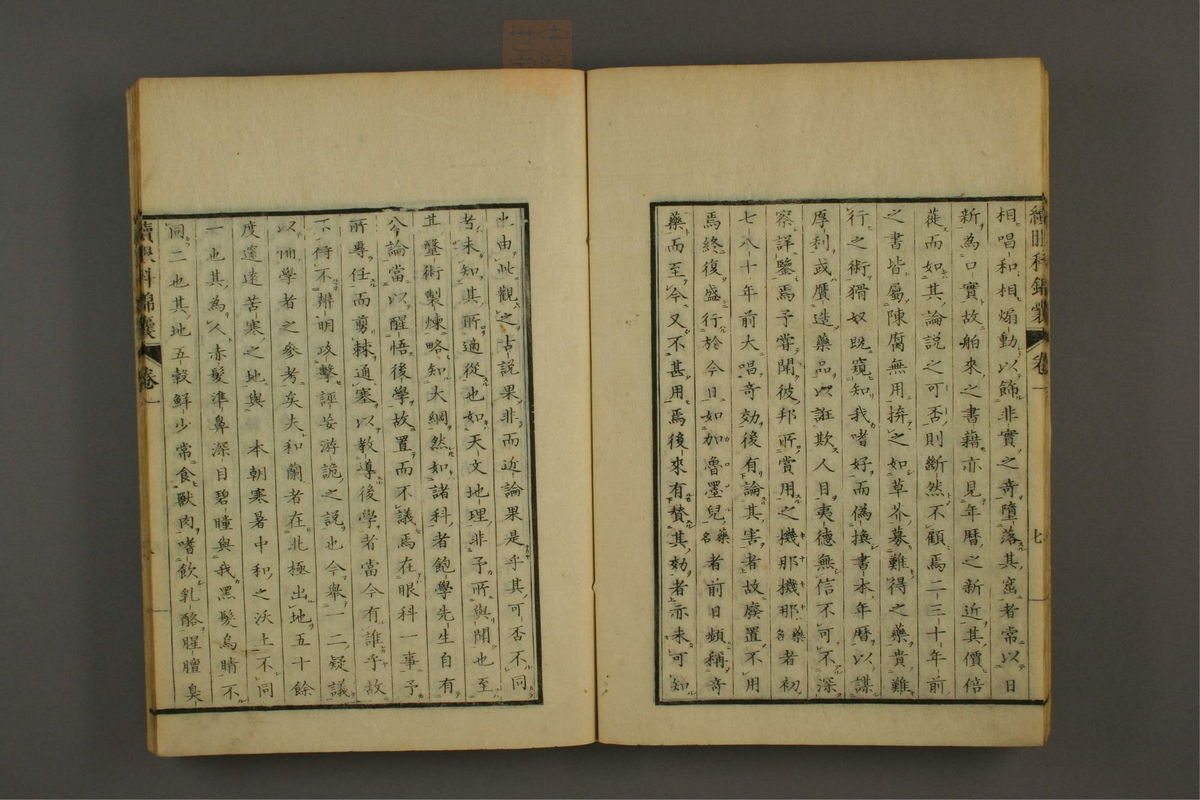 續眼科錦囊 卷一 七
相唱和相煽動以飾非實之奇墮落其窟者常以日
新為口實故舶來之書藉亦見年曆之新近其價倍
蓰而如其論說之可否則斷然不顧焉二三十年前
之書皆屬陳腐無用拚之如草芥募難得之藥貴難
行之術猾奴既窺知我嗜好而偽換書本年曆以謀
厚利或贋造藥品以誑欺人目夷德無信不可不深
察詳鑒焉予嘗聞彼邦所賞用之機那機那藥名者初
七八十年前大唱奇効後有論其害者故廢置不用
焉終復盛行於今日如加魯墨兒藥名者前日頻稱奇
藥而至今又不甚用焉後來有賛其効者亦未可知
也由此觀之古説果非而近論果是乎其可否不同
考未知其所適從也如天文地理非予所與聞也至
其醫術製煉略知大綱然如諸科者飽學先生自有
公論當以醒悟後學故置而不議焉在眼科一事予
所專任而剪棘通塞以教導後學者當今有誰乎故
不得不辨明攻擊誣妄游詭之說也今舉一二疑議
以備學者之參考矣夫和蘭者在北極出地五十餘
度邊遠苦寒之地與 本朝寒暑中和之沃土不同
一也其為人赤髮準鼻深目碧瞳與我黑髮烏睛不
同二也其地五穀鮮少常食獸肉嗜飲乳酪腥膻臭
續眼科錦囊 卷一